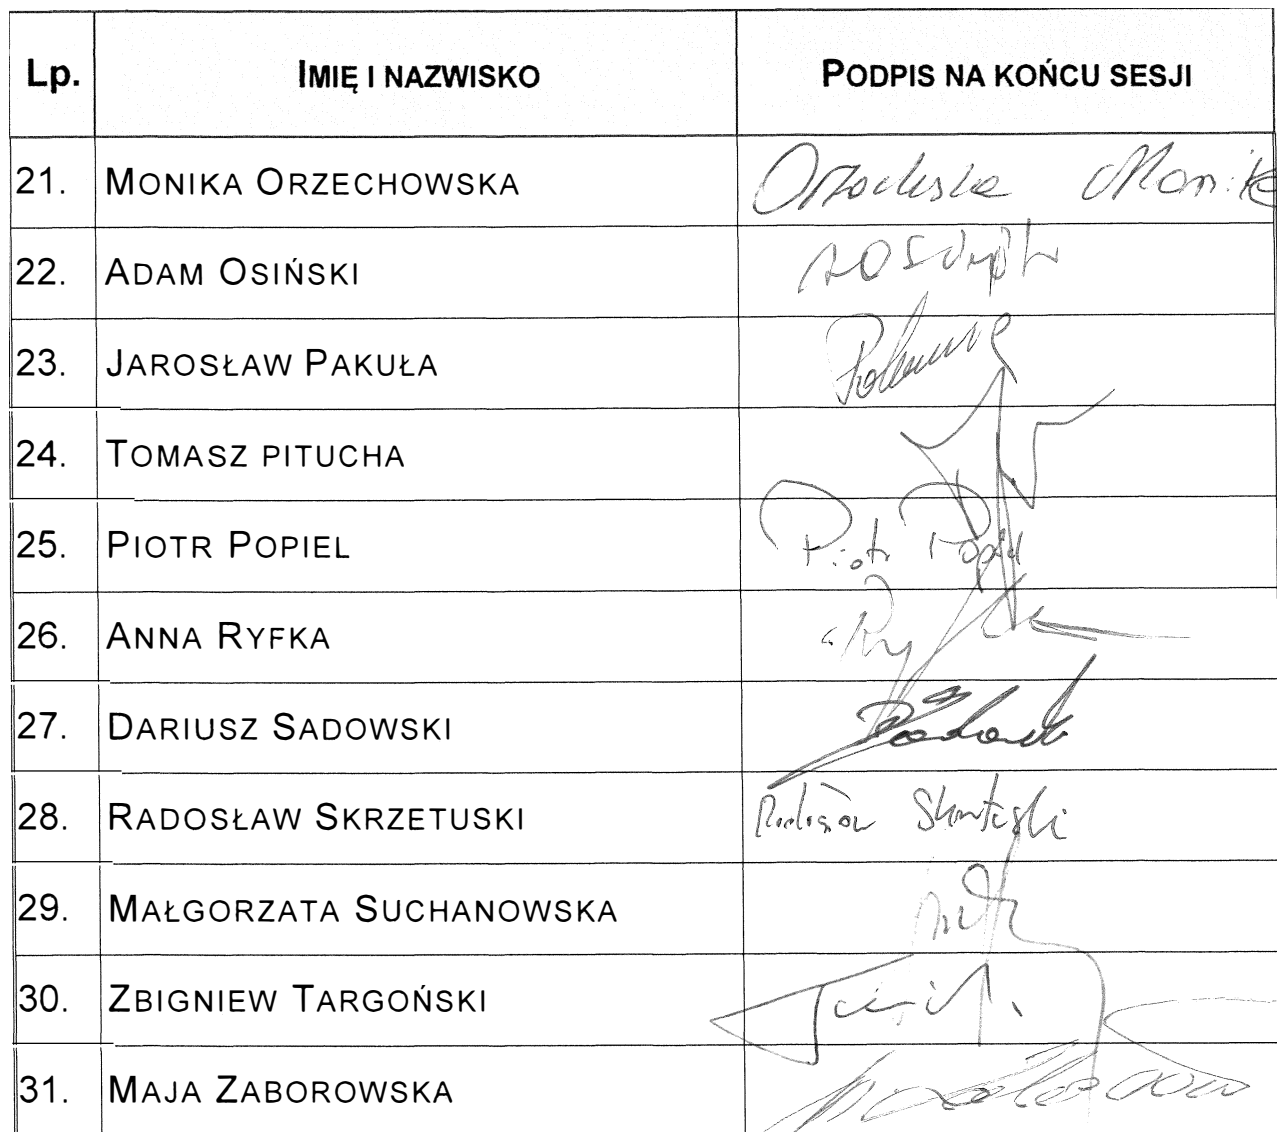 Lp. IMIĘ I NAZWISKO PODPIS NA KOŃCU SESJI
21. MONIKA ORZECHOWSKA Monika
22. ADAM OSIŃSKI
23. JAROSŁAW PAKUŁA
24. TOMASZ PITUCHA
25. PIOTR POPIEL Piotr Popiel
26. ANNA RYFKA
27. DARIUSZ SADOWSKI
28. RADOSŁAW SKRZETUSKI
29. MAŁGORZATA SUCHANOWSKA
30. ZBIGNIEW TARGOŃSKI
31. MAJA ZABOROWSKA